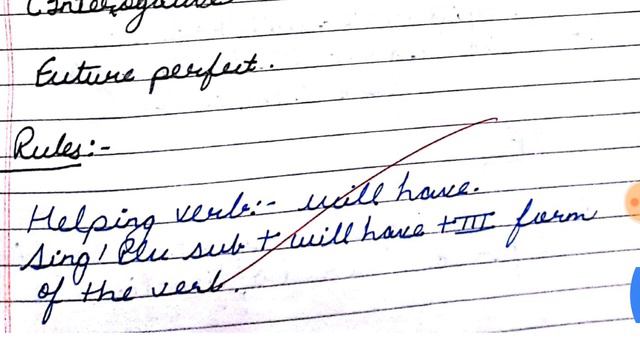 (Interrogative
Future perfect.
Rules:-
Helping verb:- will have.
Sing/ Plu sub + will have + III form
of the verb.